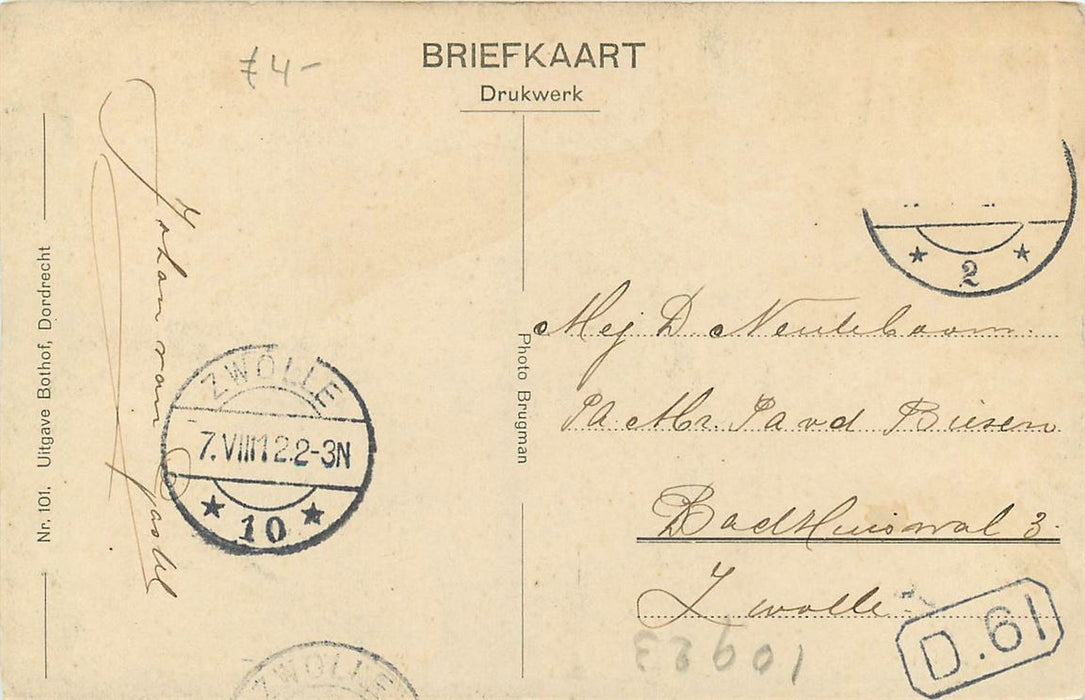 BRIEFKAART
Drukwerk
£4-
Nr. 101. Uitgave Bothof, Dordrecht
Johan van
ZWOLLE
7.VIII12.2-3N
10
Photo Brugman
2
Mej D. Neuteboom.
PA. Mr. P. A. v. d. Biesen
Badhuiswal 3.
Zwolle
D.61
10923
ZWOLLE